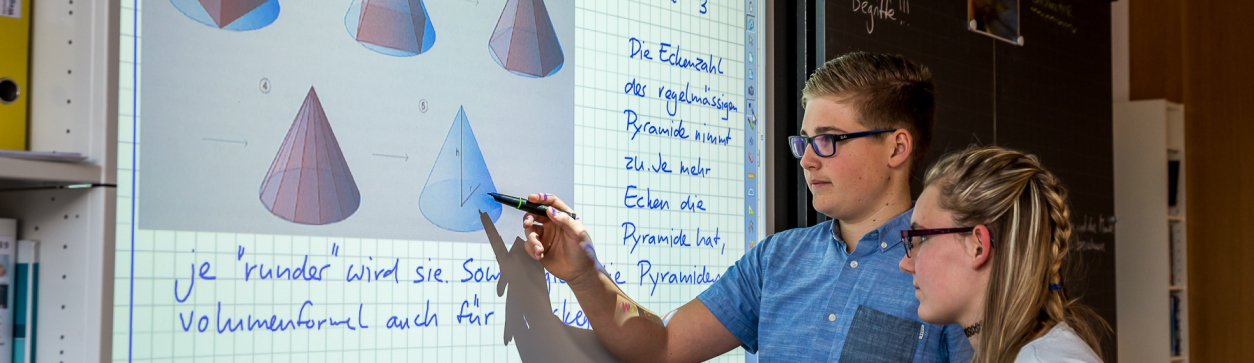 3
Begriffe!!!
Die Eckenzahl
des regelmässigen
Pyramide nimmt
zu. Je mehr
Ecken die
Pyramide hat,
④
⑤
h
r
je "runder" wird sie. Sow die Pyramiden
volumenformel auch für